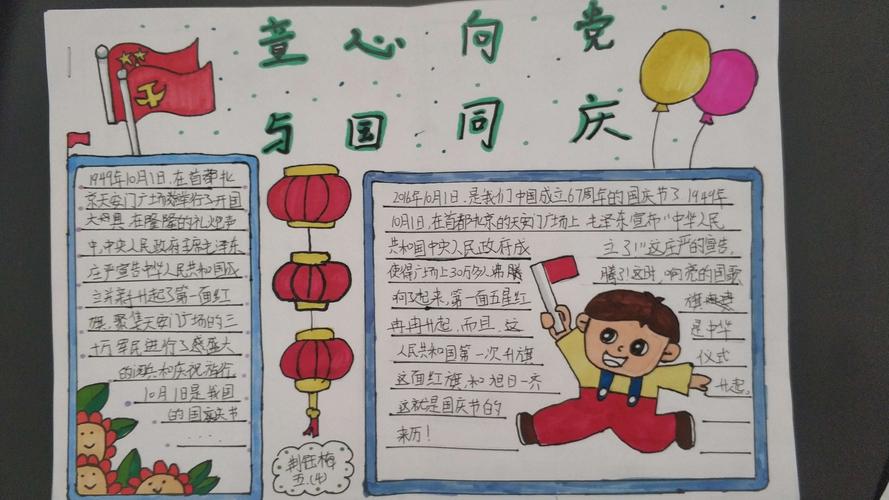 童心向党
与国同庆
1949年10月1日,在首都北
京天安门广场举行了开国
大典,在隆隆的礼炮声
中,中央人民政府主席毛泽东
庄严宣告中华人民共和国成
立并亲手升起了第一面红
旗,聚集天安门广场的三
十万军民进行了盛大
的阅兵和庆祝游行.
10月1日是我国
的国庆节
......
2016年10月1日,是我们中国成立67周年的国庆节了1949年
10月1日,在首都北京的天安门广场上毛泽东宣布"中华人民
共和国中央人民政府成 立了!"这庄严的宣告,
使得广场上30万多人沸腾 腾了!这时,响亮的国歌
响了起来,第一面五星红 旗
冉冉升起,而且,这 是中华
人民共和国第一次升旗 仪式
这面红旗,和旭日一齐 升起。
这就是国庆节的
来历!
荆钰梅
五.(4)